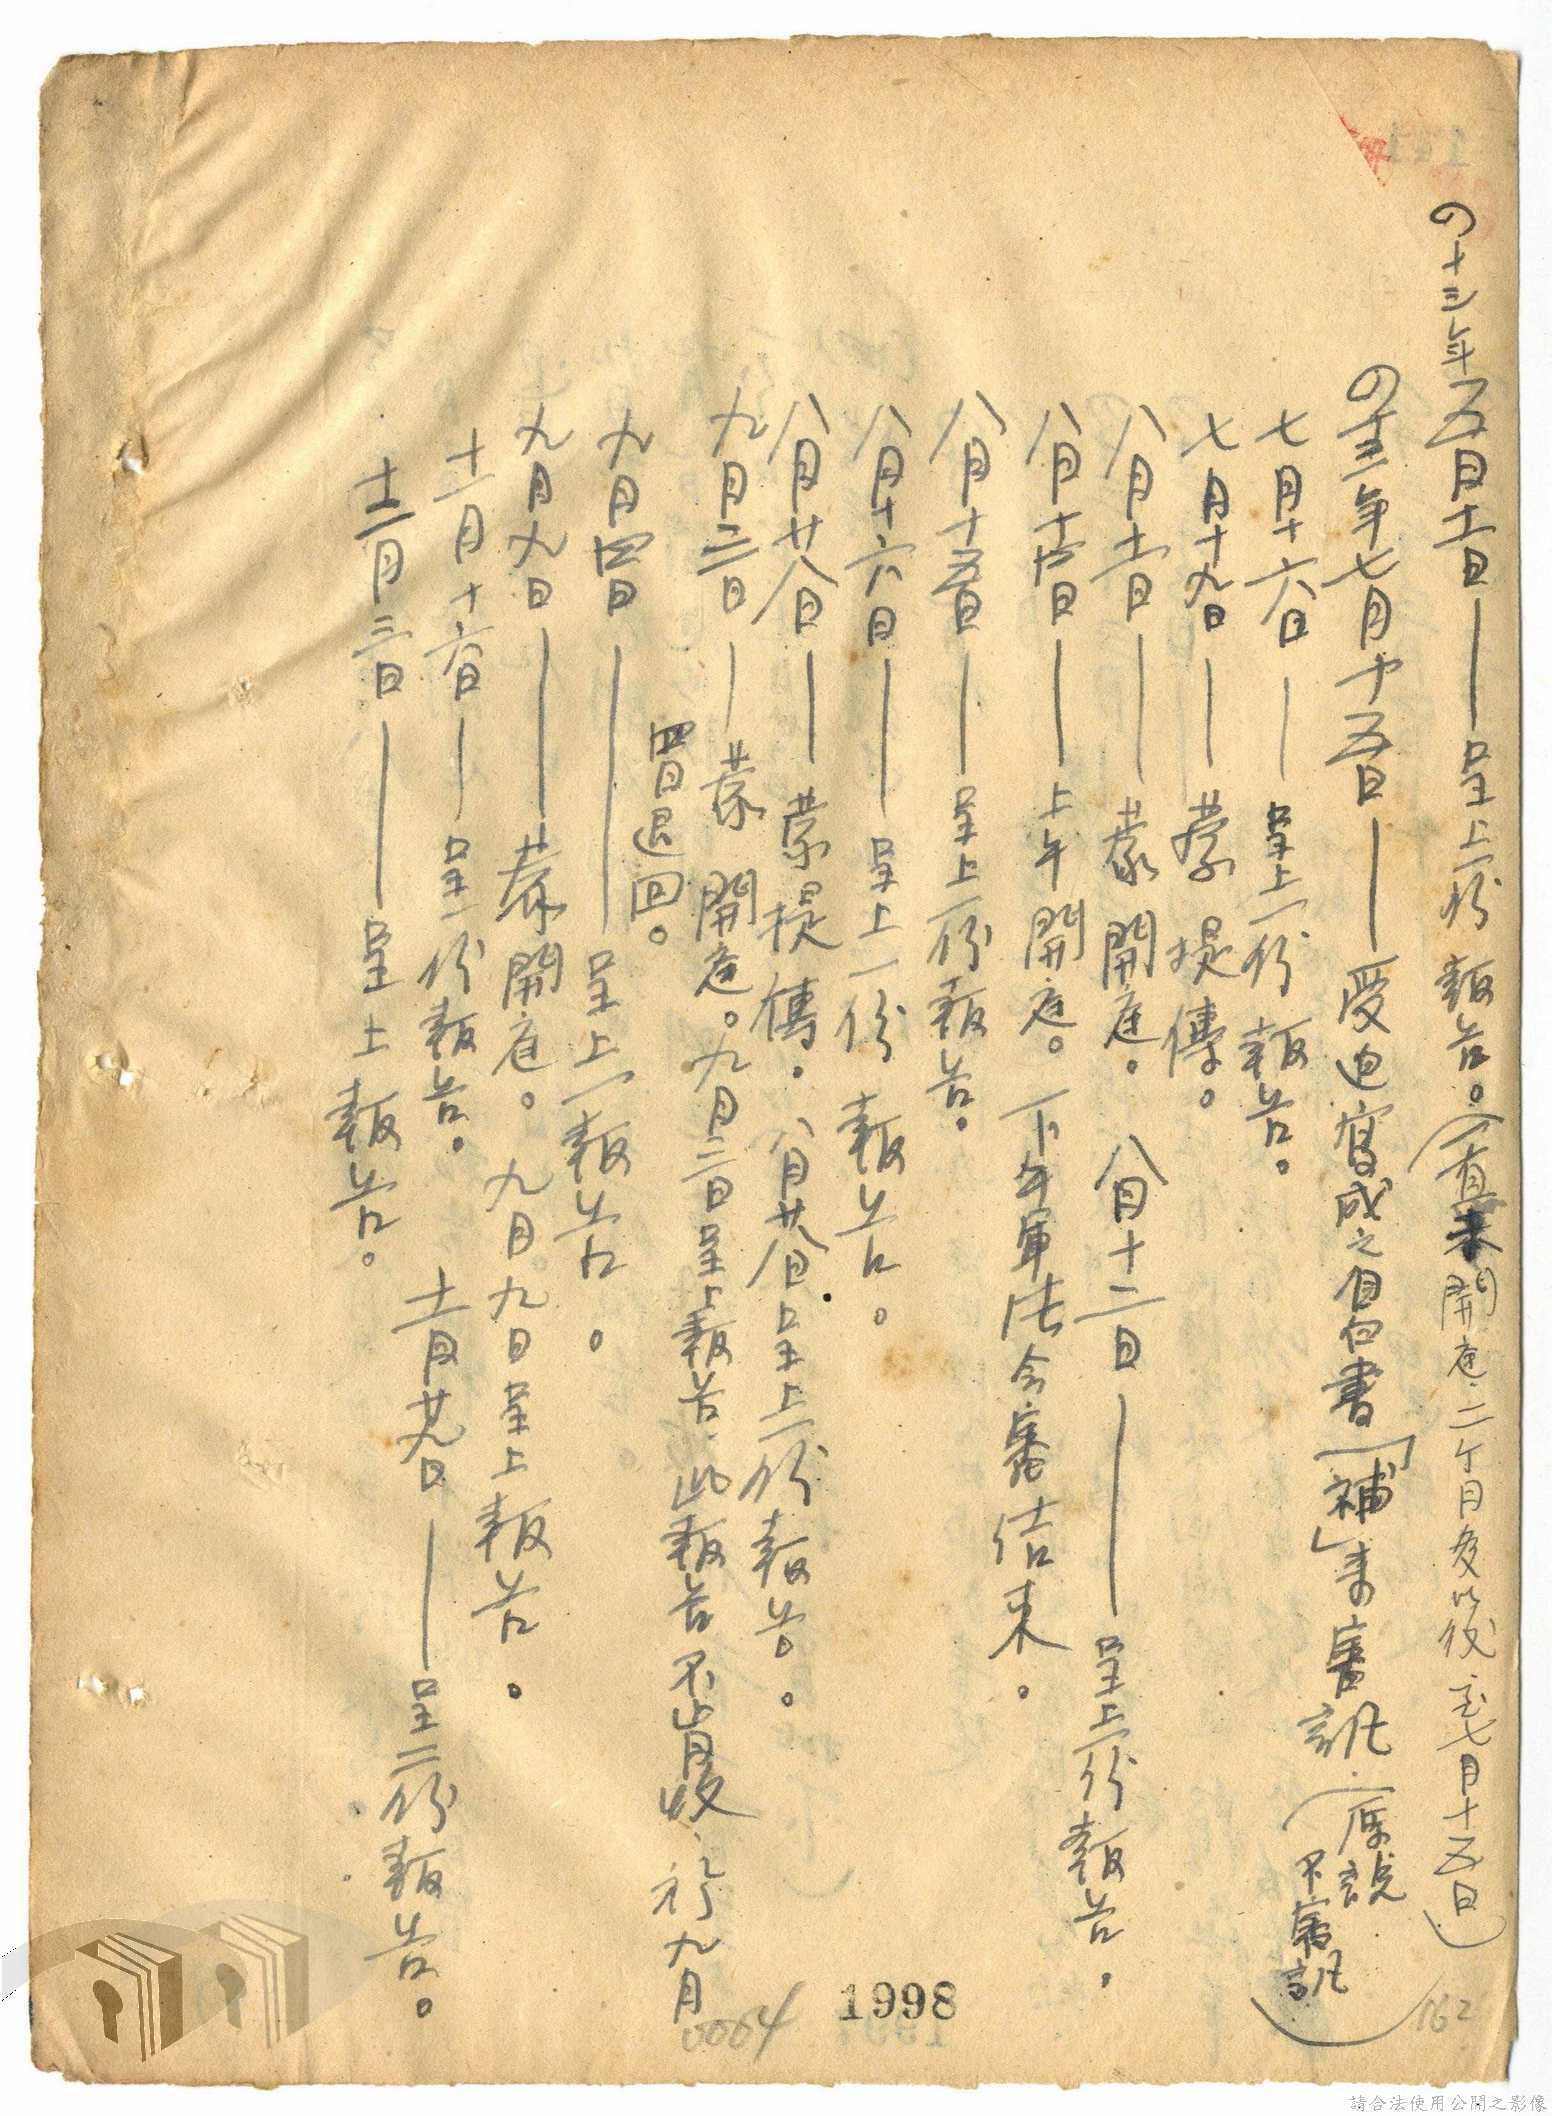 四十三年五月十一日——呈上一份報告。(直未開庭、二ケ月多以後至七月十五日)
四十三年七月十五日——受迫寫成之自白書「補」書審訊、(原說不審訊)
七月十六日——呈上一份報告。
七月十九日——蒙提傳。
八月十一日——蒙開庭。 八月十二日——呈上一份報告。
八月十四日——上午開庭。下午軍法会審結束。
八月十五日——呈上一份報告。
八月十六日——呈上一份報告。
八月廿八日——蒙提傳。八月廿八日呈上一份報告。
九月三日——蒙開庭。九月三日呈上報告、此報告不肯收、於九月
四日退回。
九月四日——呈上一報告。
九月九日——蒙開庭。九月九日呈上報告。
十一月十六日——呈一份報告。 十一月廿九日——呈二份報告。
十二月三日——呈上報告。
0064
1998
162
請合法使用公開之影像